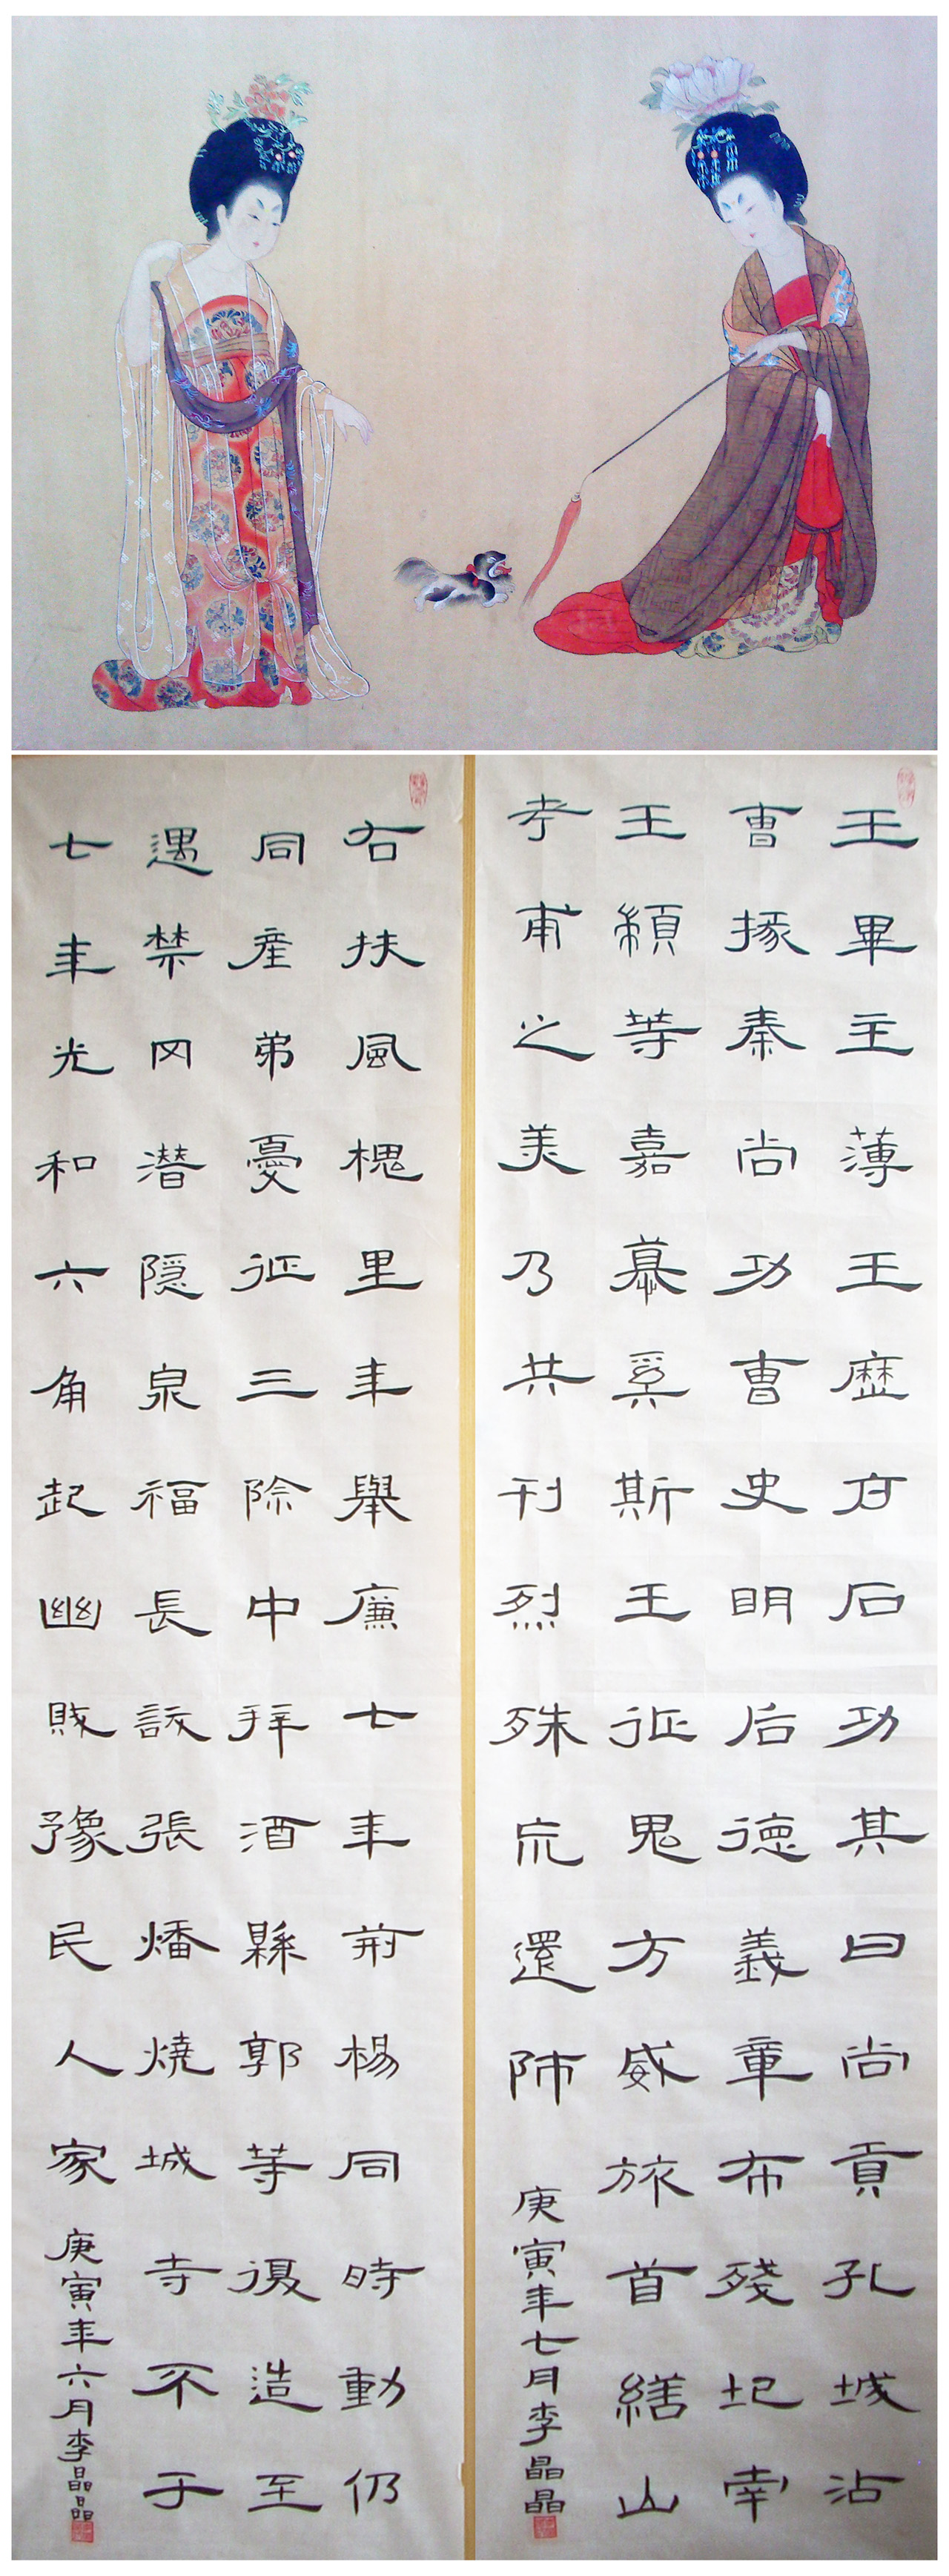 王畢主薄王歷户石功其曰尚貢孔城沾
曹掾秦尚功曹史明后德義章布殘圮南
王顓等嘉慕奚斯王征鬼方威旅首繕山
考甫之美乃共刊烈殊巟還師
庚寅年七月李晶晶
右扶風槐里年舉廉七年荊楊同時動仍
同產弟憂征三除中拜酒縣郭等復造至
遇禁冈潛隱泉福長訞張燔燒城寺不于
七年光和六角起幽賊豫民人家
庚寅年六月李晶晶